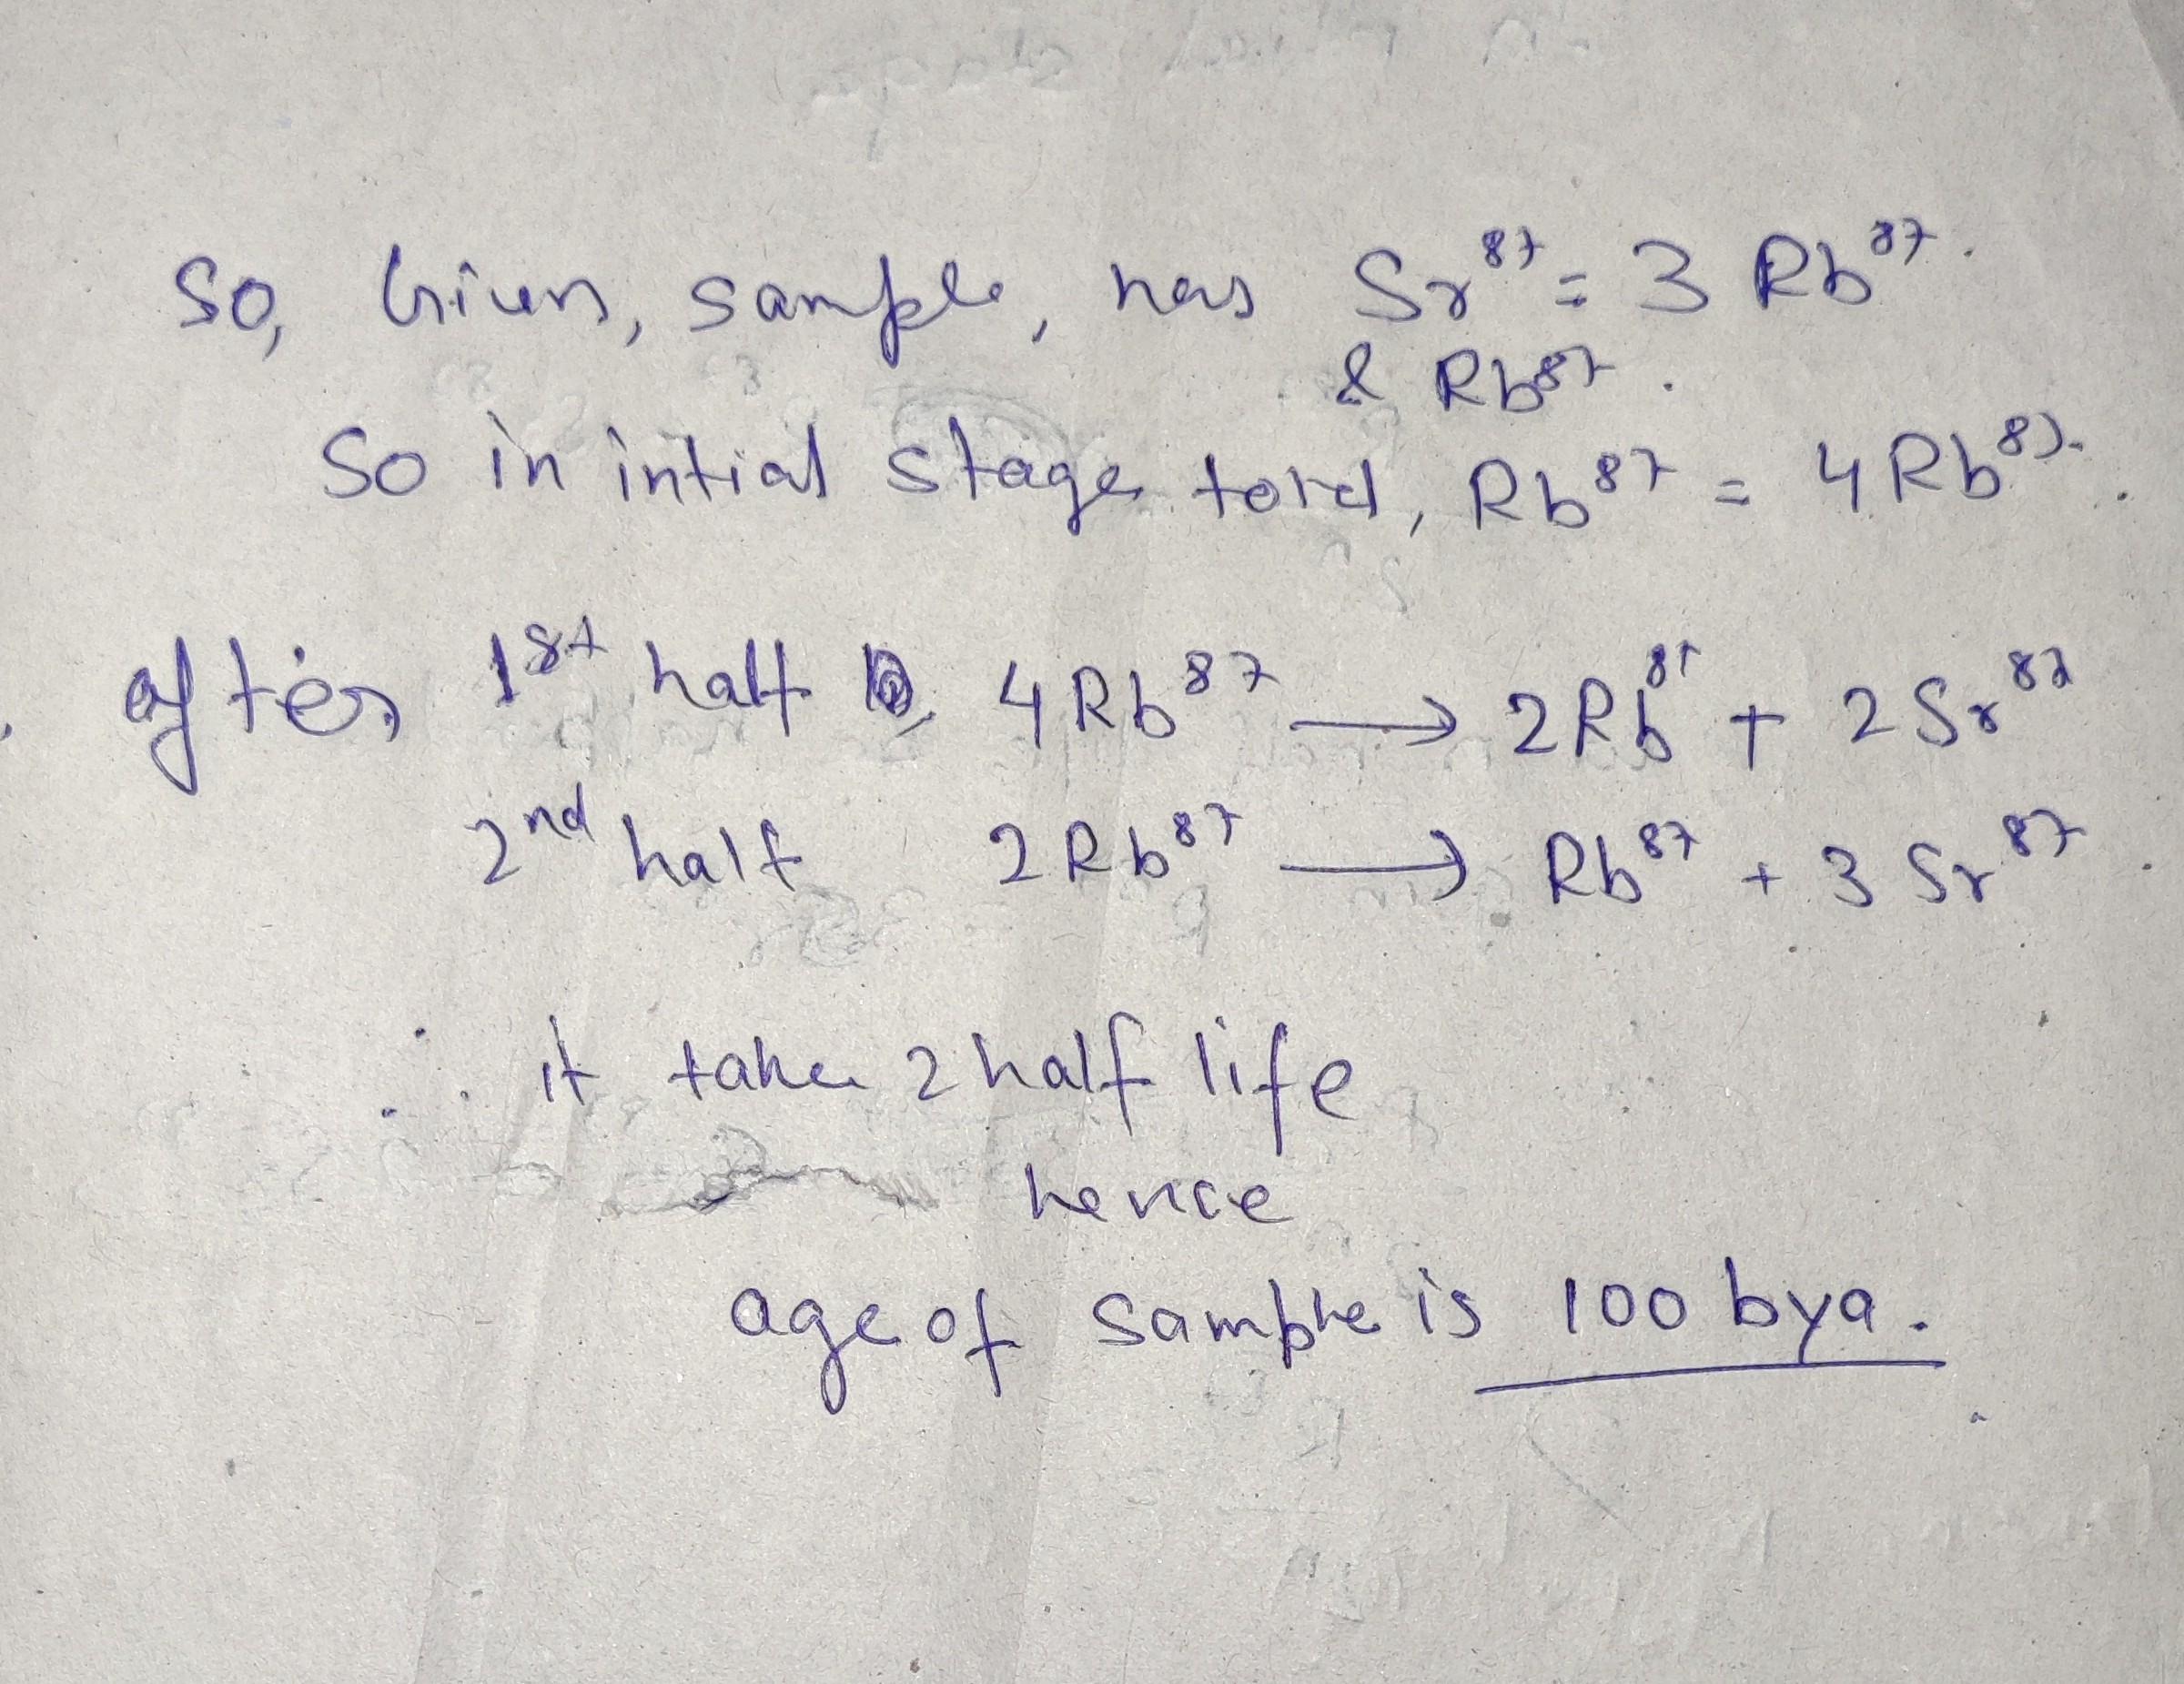 So, Given, sample, has Sr⁸⁷ = 3 Rb⁸⁷.
& Rb⁸⁷.
So in intial stage total, Rb⁸⁷ = 4 Rb⁸⁷.
after 1st half 4 Rb⁸⁷ → 2 Rb⁸⁷ + 2 Sr⁸⁷
2nd half 2 Rb⁸⁷ → Rb⁸⁷ + 3 Sr⁸⁷.
∴ it take 2 half life
hence
age of sample is 100 bya.